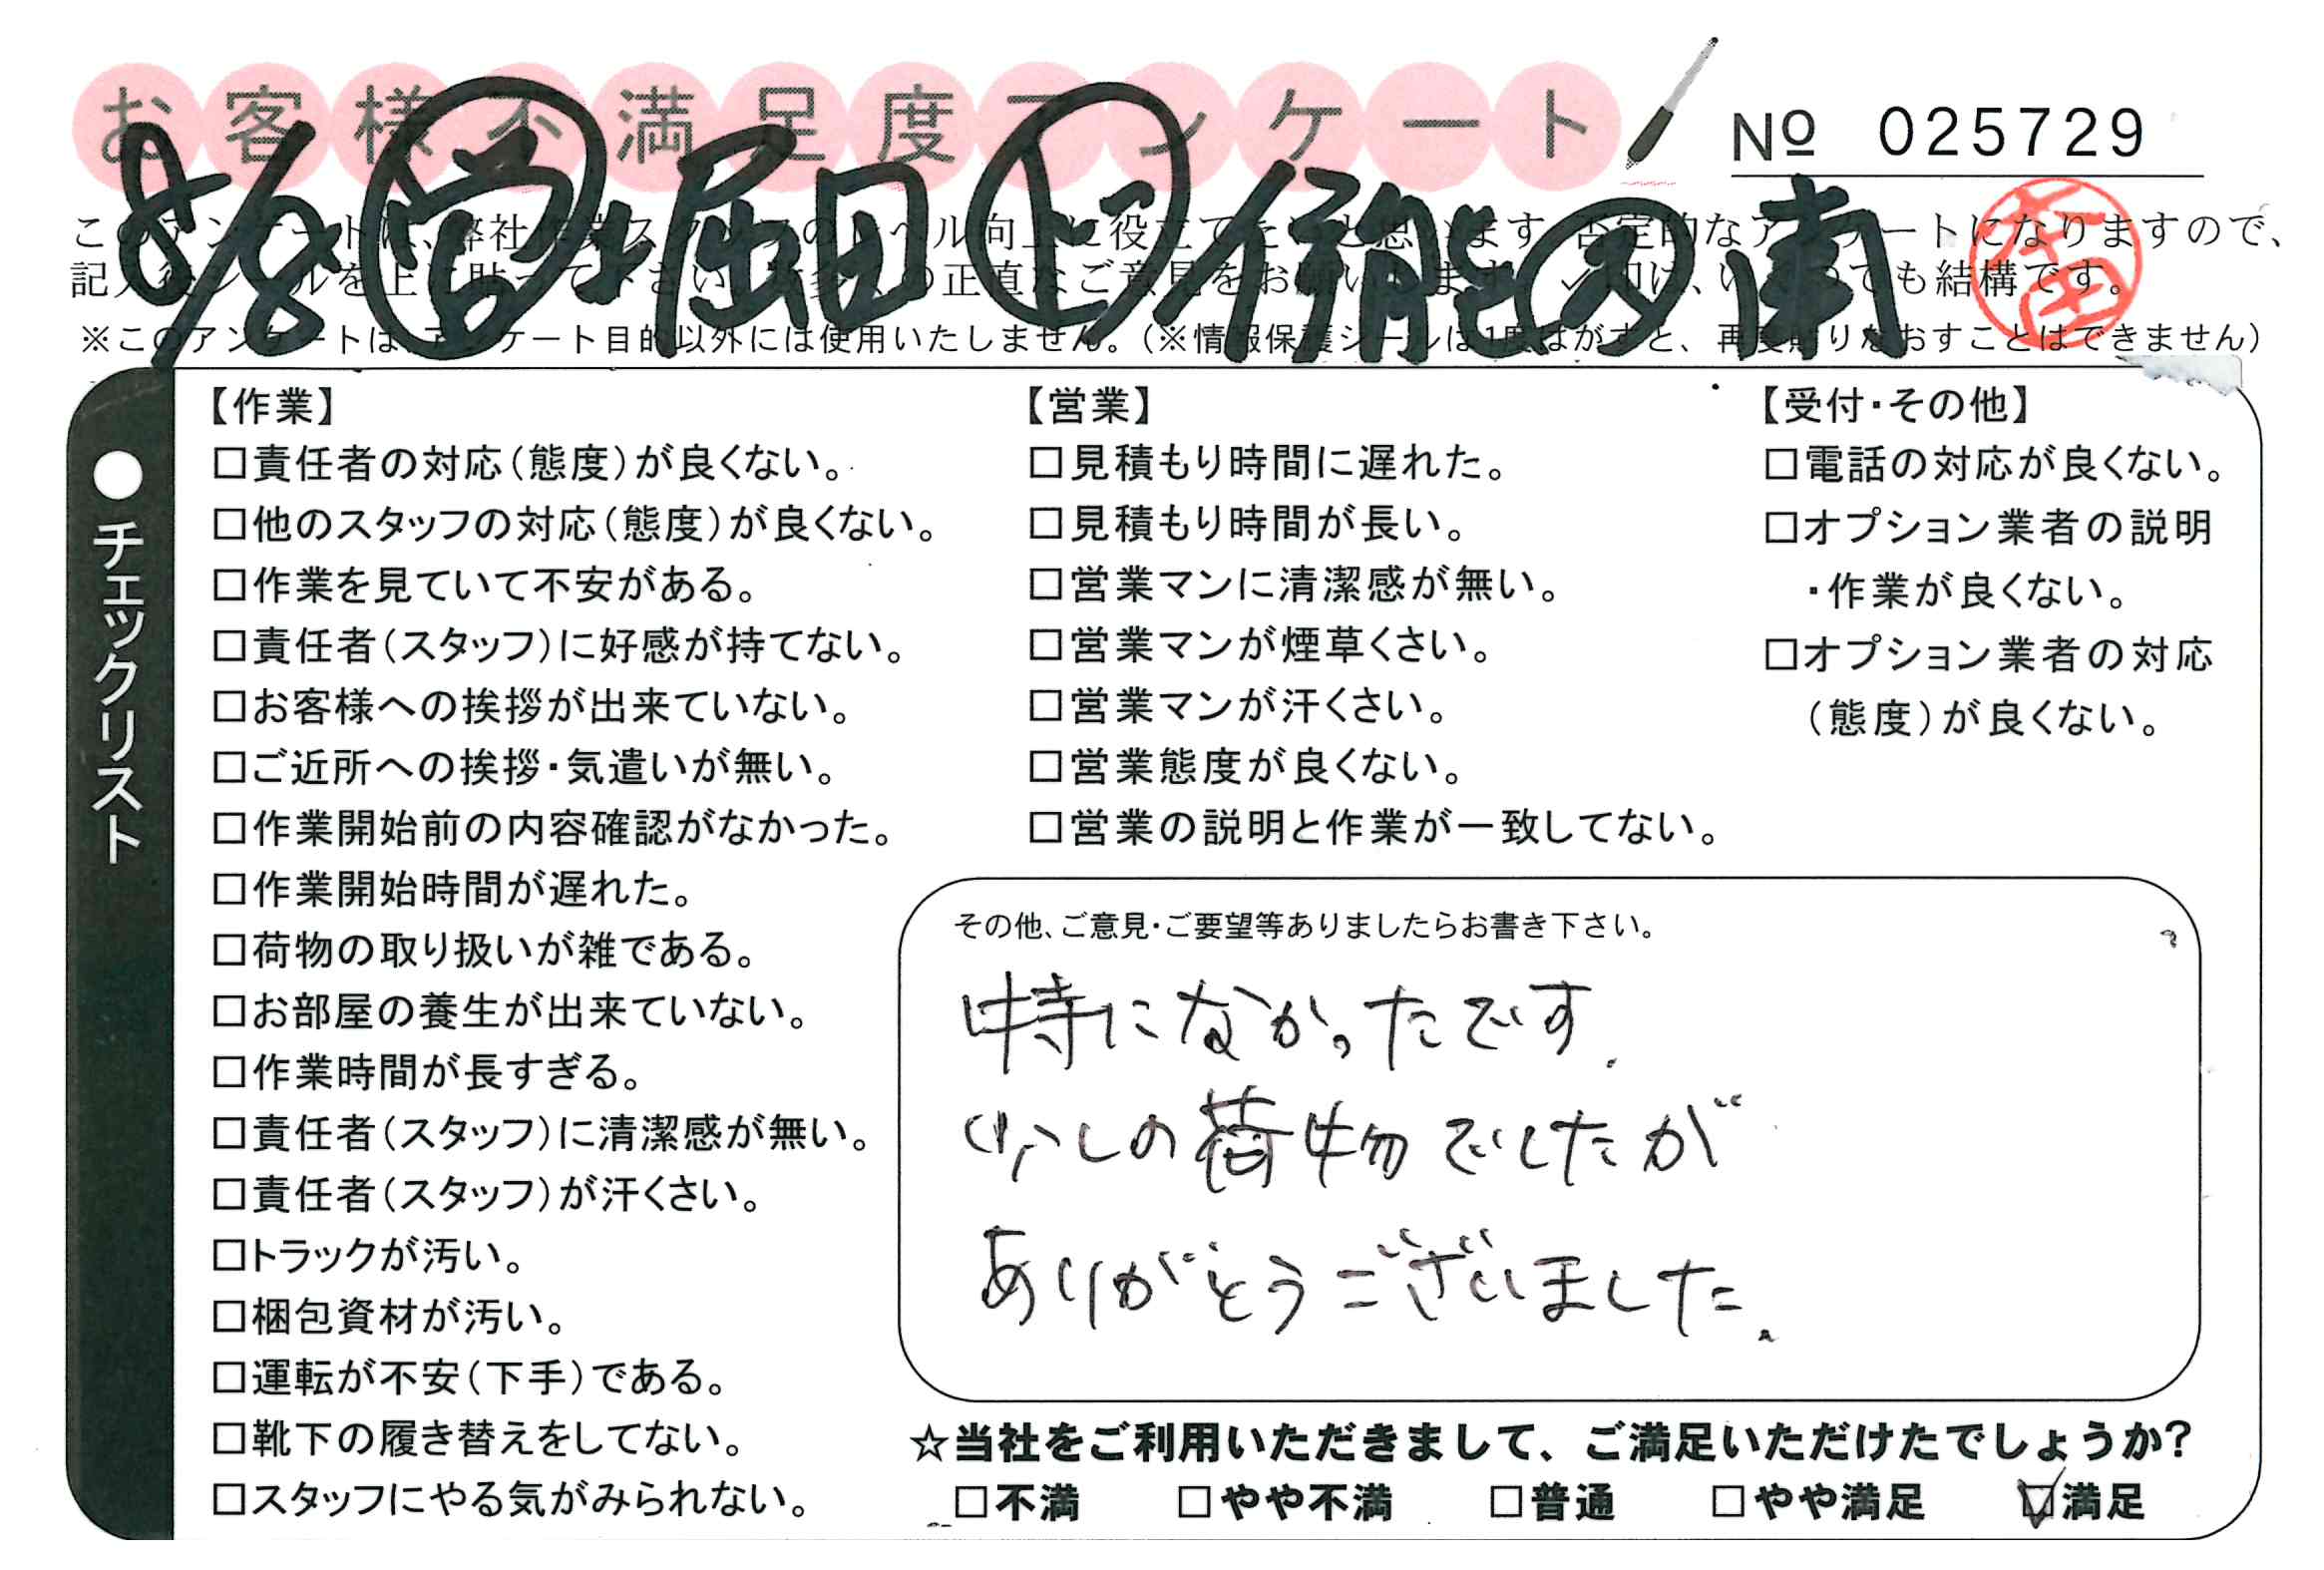 お客様不満足度アンケート
№ 025729
8/8 営 堀田 上 伊能 ス 南
このアンケートは、弊社作業スタッフのレベル向上に役立てたいと思います。否定的なアンケートになりますので、
※このアンケートは、アンケート目的以外には使用いたしません。（※情報保護シールは1度はがすと、再度貼りなおすことはできません）
●チェックリスト
【作業】
□責任者の対応（態度）が良くない。
□他のスタッフの対応（態度）が良くない。
□作業を見ていて不安がある。
□責任者（スタッフ）に好感が持てない。
□お客様への挨拶が出来ていない。
□ご近所への挨拶・気遣いが無い。
□作業開始前の内容確認がなかった。
□作業開始時間が遅れた。
□荷物の取り扱いが雑である。
□お部屋の養生が出来ていない。
□作業時間が長すぎる。
□責任者（スタッフ）に清潔感が無い。
□責任者（スタッフ）が汗くさい。
□トラックが汚い。
□梱包資材が汚い。
□運転が不安（下手）である。
□靴下の履き替えをしてない。
□スタッフにやる気がみられない。
【営業】
□見積もり時間に遅れた。
□見積もり時間が長い。
□営業マンに清潔感が無い。
□営業マンが煙草くさい。
□営業マンが汗くさい。
□営業態度が良くない。
□営業の説明と作業が一致してない。
【受付・その他】
□電話の対応が良くない。
□オプション業者の説明
・作業が良くない。
□オプション業者の対応
（態度）が良くない。
その他、ご意見・ご要望等ありましたらお書き下さい。
特になかったです.
少しの荷物でしたが
ありがとうございました.
☆当社をご利用いただきまして、ご満足いただけたでしょうか?
□不満 □やや不満 □普通 □やや満足 ☑満足